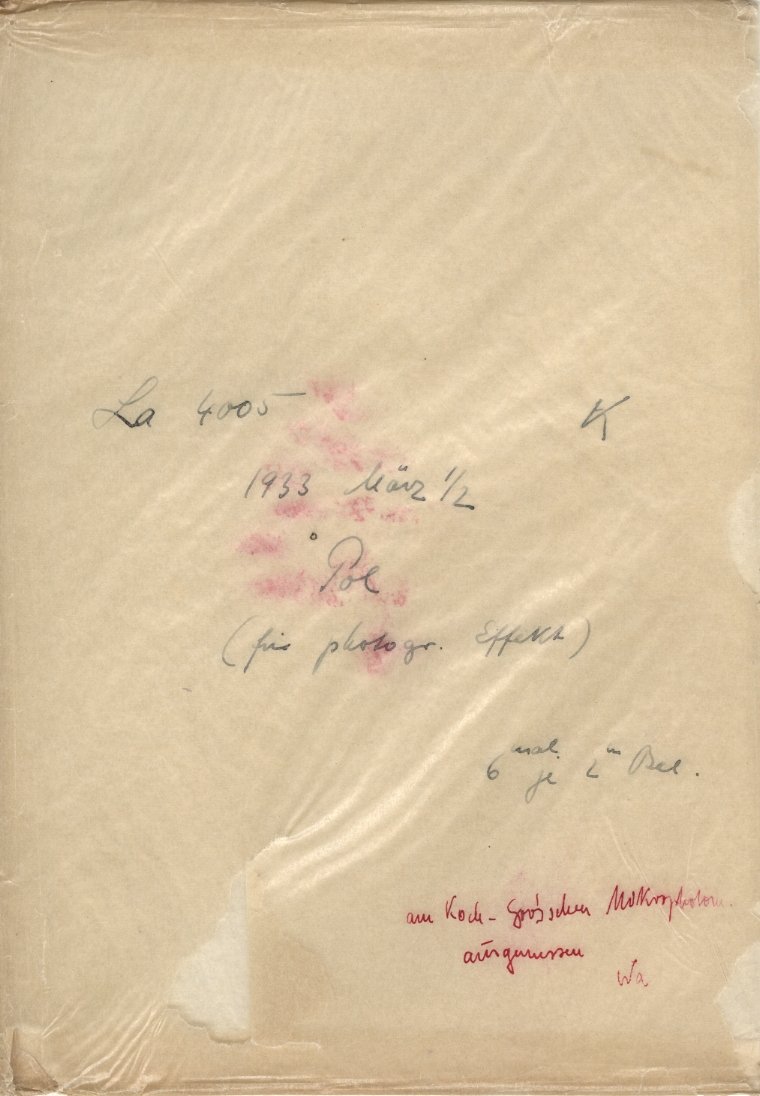 La 4005 K
1933 März 1/2
Pol
(für photogr. Effekt)
6 mal je 2 m Bel.
am Koch-Goos'schen Mikrophotom.
ausgemessen
Wa